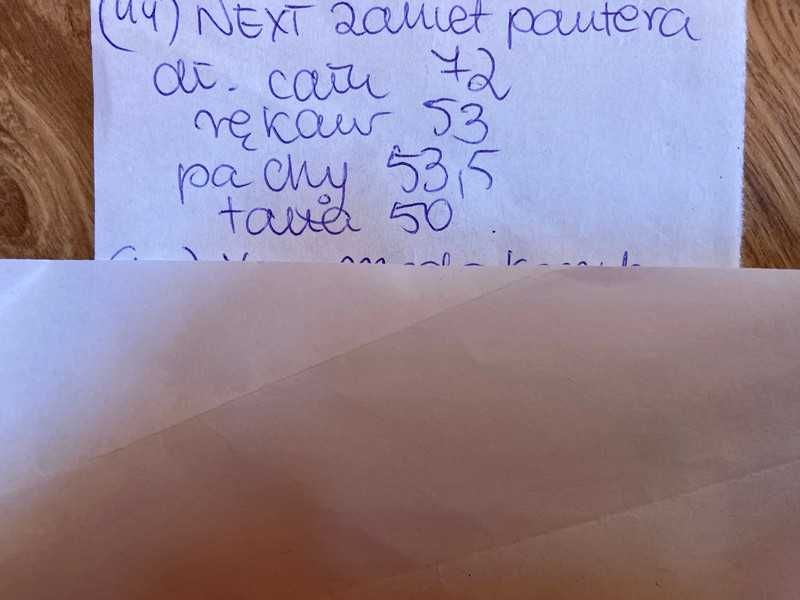 (44) NEXT żakiet pantera
dł. całk 72
rękaw 53
pachy 53,5
talia 50